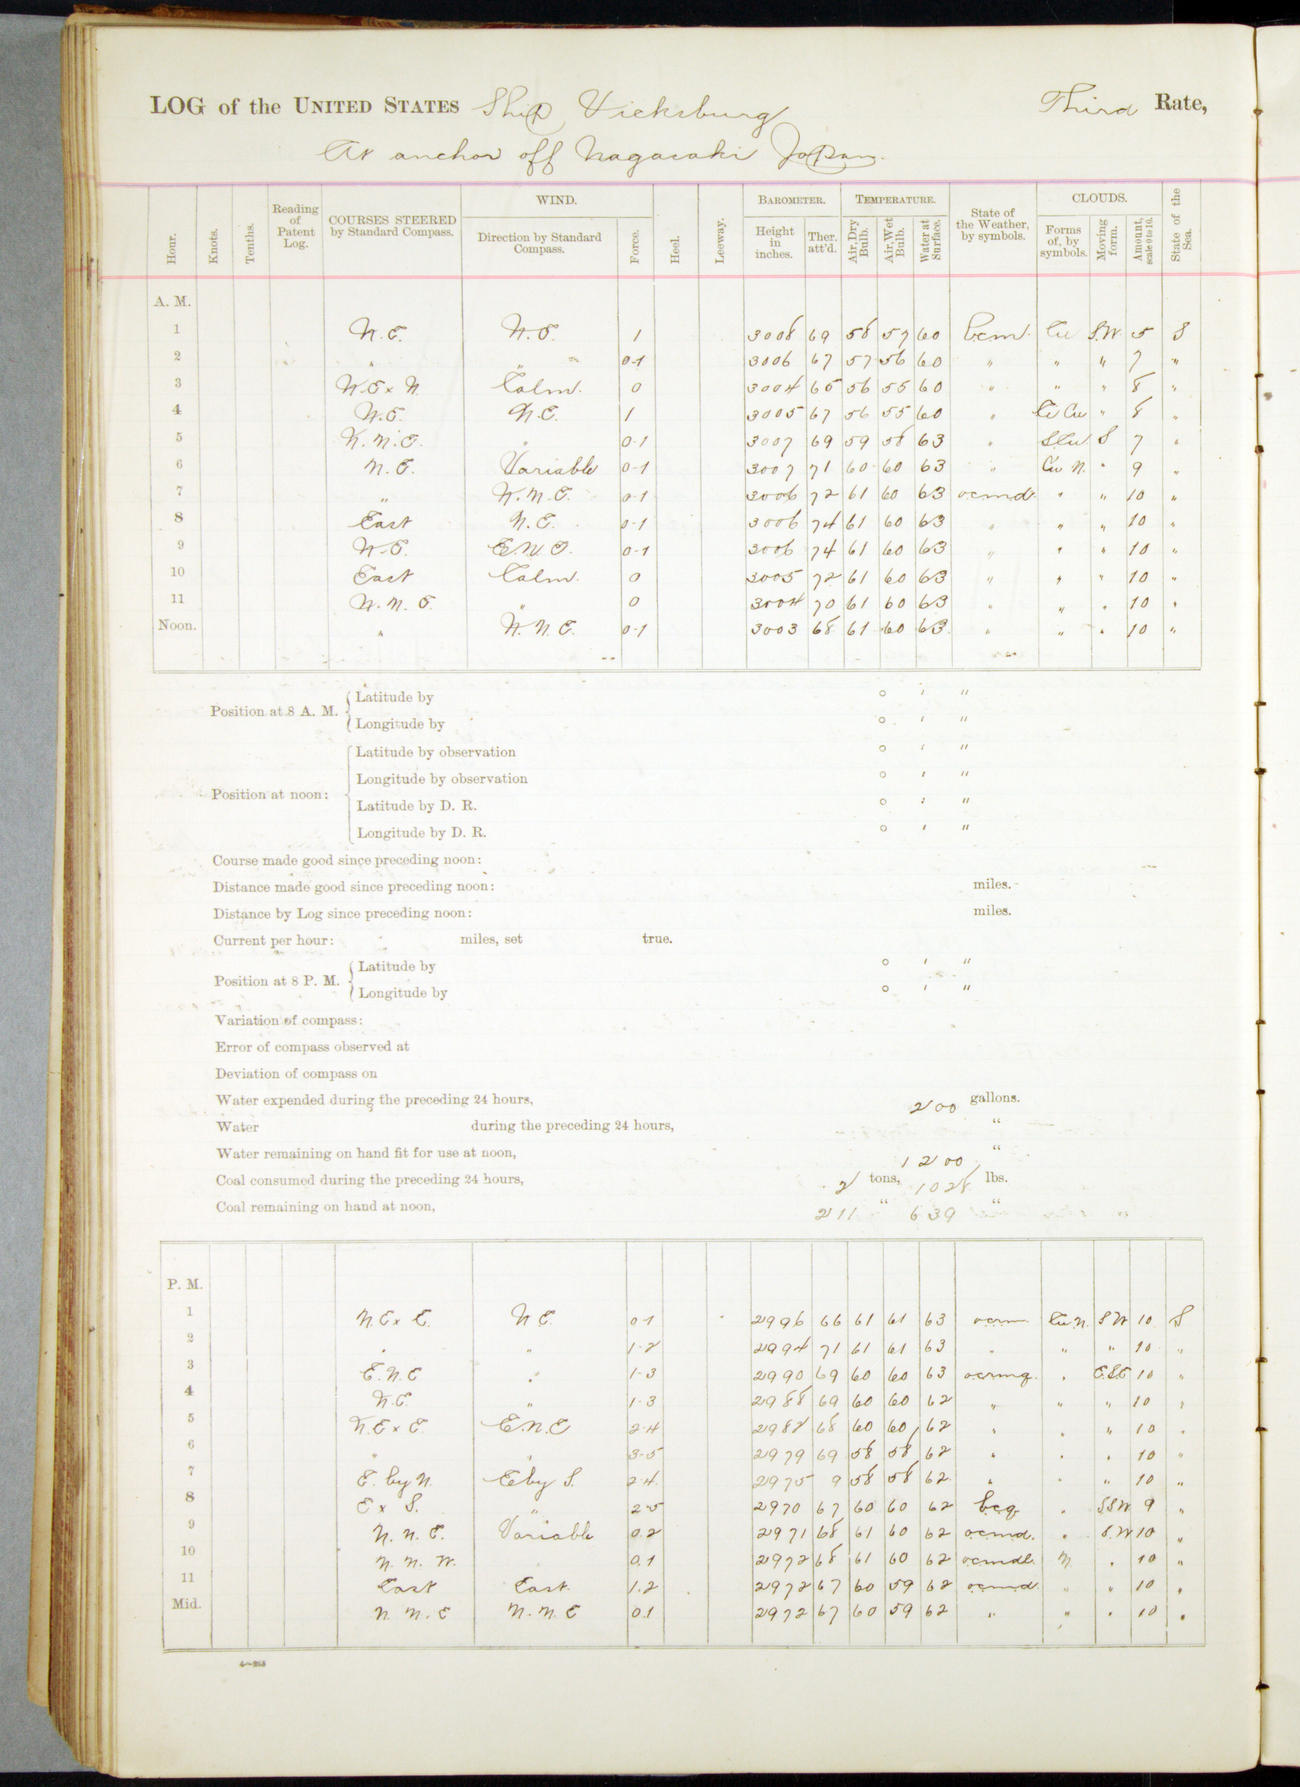 LOG of the UNITED STATES Ship Vicksburg Third Rate,
At anchor off Nagasaki Japan.
Hour. Knots. Tenths. Reading of Patent Log. COURSES STEERED by Standard Compass. WIND. Direction by Standard Compass. Force. Heel. Leeway. BAROMETER. Height in inches. Ther. att'd. TEMPERATURE. Air, Dry Bulb. Air, Wet Bulb. Water at Surface. State of the Weather, by symbols. CLOUDS. Forms of, by symbols. Moving form. Amount, scale 0 to 10. State of the Sea.
A. M.
1 N.E. N.E. 1 3008 69 58 57 60 bcm. Cu S.W. 5 S
2 " " 0-1 3006 67 57 56 60 " " " 7 "
3 N.E x N. Calm. 0 3004 65 56 55 60 " " " 8 "
4 N.E. N.E. 1 3005 67 56 55 60 " Ci Cu " 8 "
5 N.N.E. " 0-1 3007 69 59 58 63 " SCu S 7 "
6 N.E. Variable 0-1 3007 71 60 60 63 " Cu N. " 9 "
7 " N.N.E. 0-1 3006 72 61 60 63 ocmd. " " 10 "
8 East N.E. 0-1 3006 74 61 60 63 " " " 10 "
9 N.E. ENE. 0-1 3006 74 61 60 63 " " " 10 "
10 East Calm. 0 3005 72 61 60 63 " " " 10 "
11 N.N.E. " 0 3004 70 61 60 63 " " " 10 "
Noon. " N.N.E. 0-1 3003 68 61 60 63 " " " 10 "
Position at 8 A. M. Latitude by ° ' "
Longitude by ° ' "
Position at noon: Latitude by observation ° ' "
Longitude by observation ° ' "
Latitude by D. R. ° ' "
Longitude by D. R. ° ' "
Course made good since preceding noon:
Distance made good since preceding noon: miles.
Distance by Log since preceding noon: miles.
Current per hour: miles, set true.
Position at 8 P. M. Latitude by ° ' "
Longitude by ° ' "
Variation of compass:
Error of compass observed at
Deviation of compass on
Water expended during the preceding 24 hours, 200 gallons.
Water during the preceding 24 hours, "
Water remaining on hand fit for use at noon, 1200 "
Coal consumed during the preceding 24 hours, 2 tons, 1028 lbs.
Coal remaining on hand at noon, 211 " 639 "
P. M.
1 N.E x E. N E. 0-1 2996 66 61 61 63 ocrm Cu N. S W 10 S
2 " " 1-2 2994 71 61 61 63 " " " 10 "
3 E.N.E " 1-3 2990 69 60 60 63 ocrmq. " E.S.E 10 "
4 N.E. " 1-3 2988 69 60 60 62 " " " 10 "
5 N.E x E. E.N.E 2-4 2982 68 60 60 62 " " " 10 "
6 " " 3-5 2979 69 58 58 62 " " " 10 "
7 E. by N. E by S. 2-4 2975 9 58 58 62 " " " 10 "
8 E x S. " 2-5 2970 67 60 60 62 bcq. " SSW 9 "
9 N.N.E. Variable 0.2 2971 68 61 60 62 ocmd. " S.W 10 "
10 N.N.W. 0.1 2972 68 61 60 62 ocmdl. N. " 10 "
11 East East. 1.2 2972 67 60 59 62 ocmd " " 10 "
Mid. N.N.E N.N.E 0.1 2972 67 60 59 62 " " " 10 "